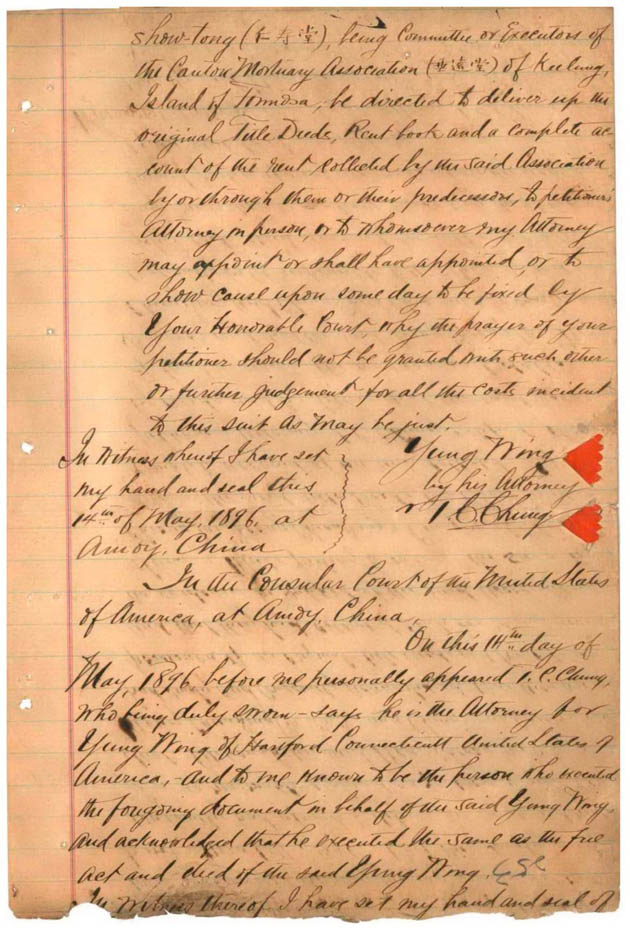 show-tong (仁寿堂), being Committee or Executors of
the Canton Mortuary Association (堂) of Keelung,
Island of Formosa, be directed to deliver up the
original Title Deeds, Rent book and a complete ac-
count of the rent collected by the said Association
by or through them or their predecessors, to petitioner's
Attorney in person, or to whomsoever my Attorney
may appoint or shall have appointed, or to
show cause upon some day to be fixed by
Your Honorable Court, why the prayer of your
petitioner should not be granted with such other
or further judgement for all the costs incident
to this suit as may be just.
In Witness whereof I have set
my hand and seal this
14th of May, 1896, at
Amoy, China
Yung Wing
by his Attorney
Y. C. Chung
In the Consular Court of the United States
of America, at Amoy, China,
On this 14th day of
May, 1896 before me personally appeared Y. C. Chung,
who being duly sworn - says he is the Attorney for
Yung Wing of Hartford Connecticut United States of
America, - and to me known to be the person who executed
the foregoing document in behalf of the said Yung Wing,
and acknowledged that he executed the same as the free
act and deed of the said Yung Wing.
In Witness thereof I have set my hand and seal of